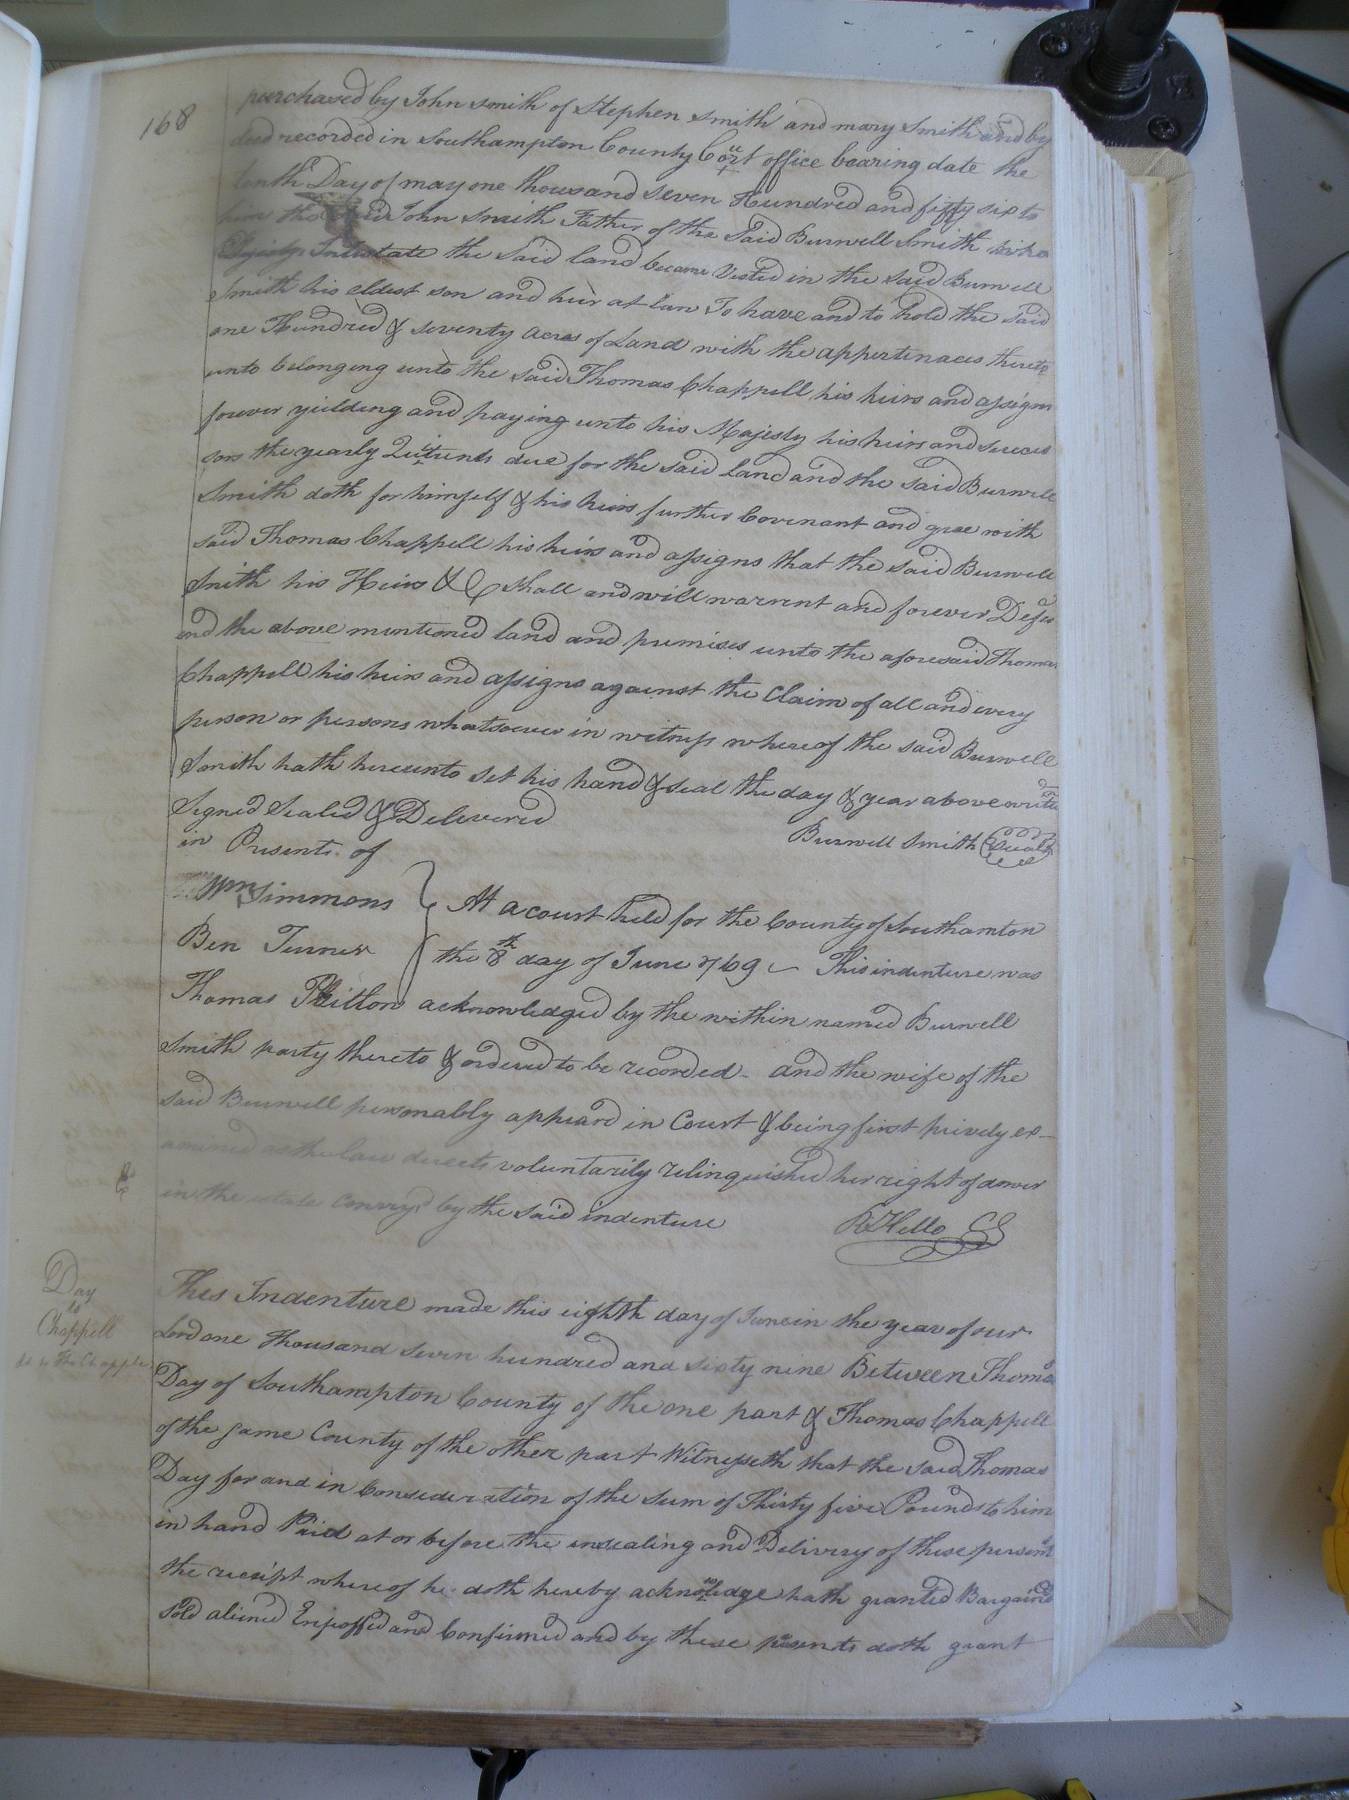 168
purchased by John Smith of Stephen Smith and mary Smith and by
deed recorded in Southampton County Court office bearing date the
tenth Day of may one thousand seven Hundred and fifty six to
him the said John Smith Father of the Said Burwell Smith who
Dying Intestate the Said land became Vested in the said Burwell
Smith his eldest son and heir at law To have and to hold the Said
one Hundred & seventy acres of Land with the appertinaces thereto
unto belonging unto the said Thomas Chappell his heirs and assigns
forever yielding and paying unto his Majesty his heirs and succes
sors the yearly Quitrents due for the said land and the said Burwell
Smith doth for himself & his heirs further Covenant and gree with
said Thomas Chappell his heirs and assigns that the said Burwell
Smith his Heirs &C shall and will warrent and forever Defe
end the above mentioned land and premises unto the aforesaid Thomas
Chappell his heirs and assigns against the Claim of all and every
person or persons whatsoever in witness whereof the said Burwell
Smith hath hereunto set his hand & seal the day & year above written
Signed Sealed & Delivered
in Presents of
Burwell Smith (Seal)
Wm Simmons
At a court held for the County of Southamton
Ben Turner
the 8th day of June 1769 - This indenture was
Thomas acknowledged by the within named Burwell
Smith party thereto & ordered to be recorded - and the wife of the
said Burwell personably appeard in Court & being first privily ex-
amined as the law directs voluntarily relinquished her right of dower
in the estate convey'd by the said indenture
R Kello CS
Day
to
Chappell
This Indenture made this eighth day of June in the year of our
Lord one thousand seven hundred and sixty nine Between Thomas
Day of Southampton County of the one part & Thomas Chappell
of the same County of the other part Witnesseth that the said Thomas
Day for and in Consideration of the sum of Thirty five Pounds to him
in hand Paid at or before the ensealing and Delivery of these persents
the receipt whereof he doth hereby acknowledge hath granted Bargained
Sold aliened Enfeoffed and Confirmed and by these presents doth grant